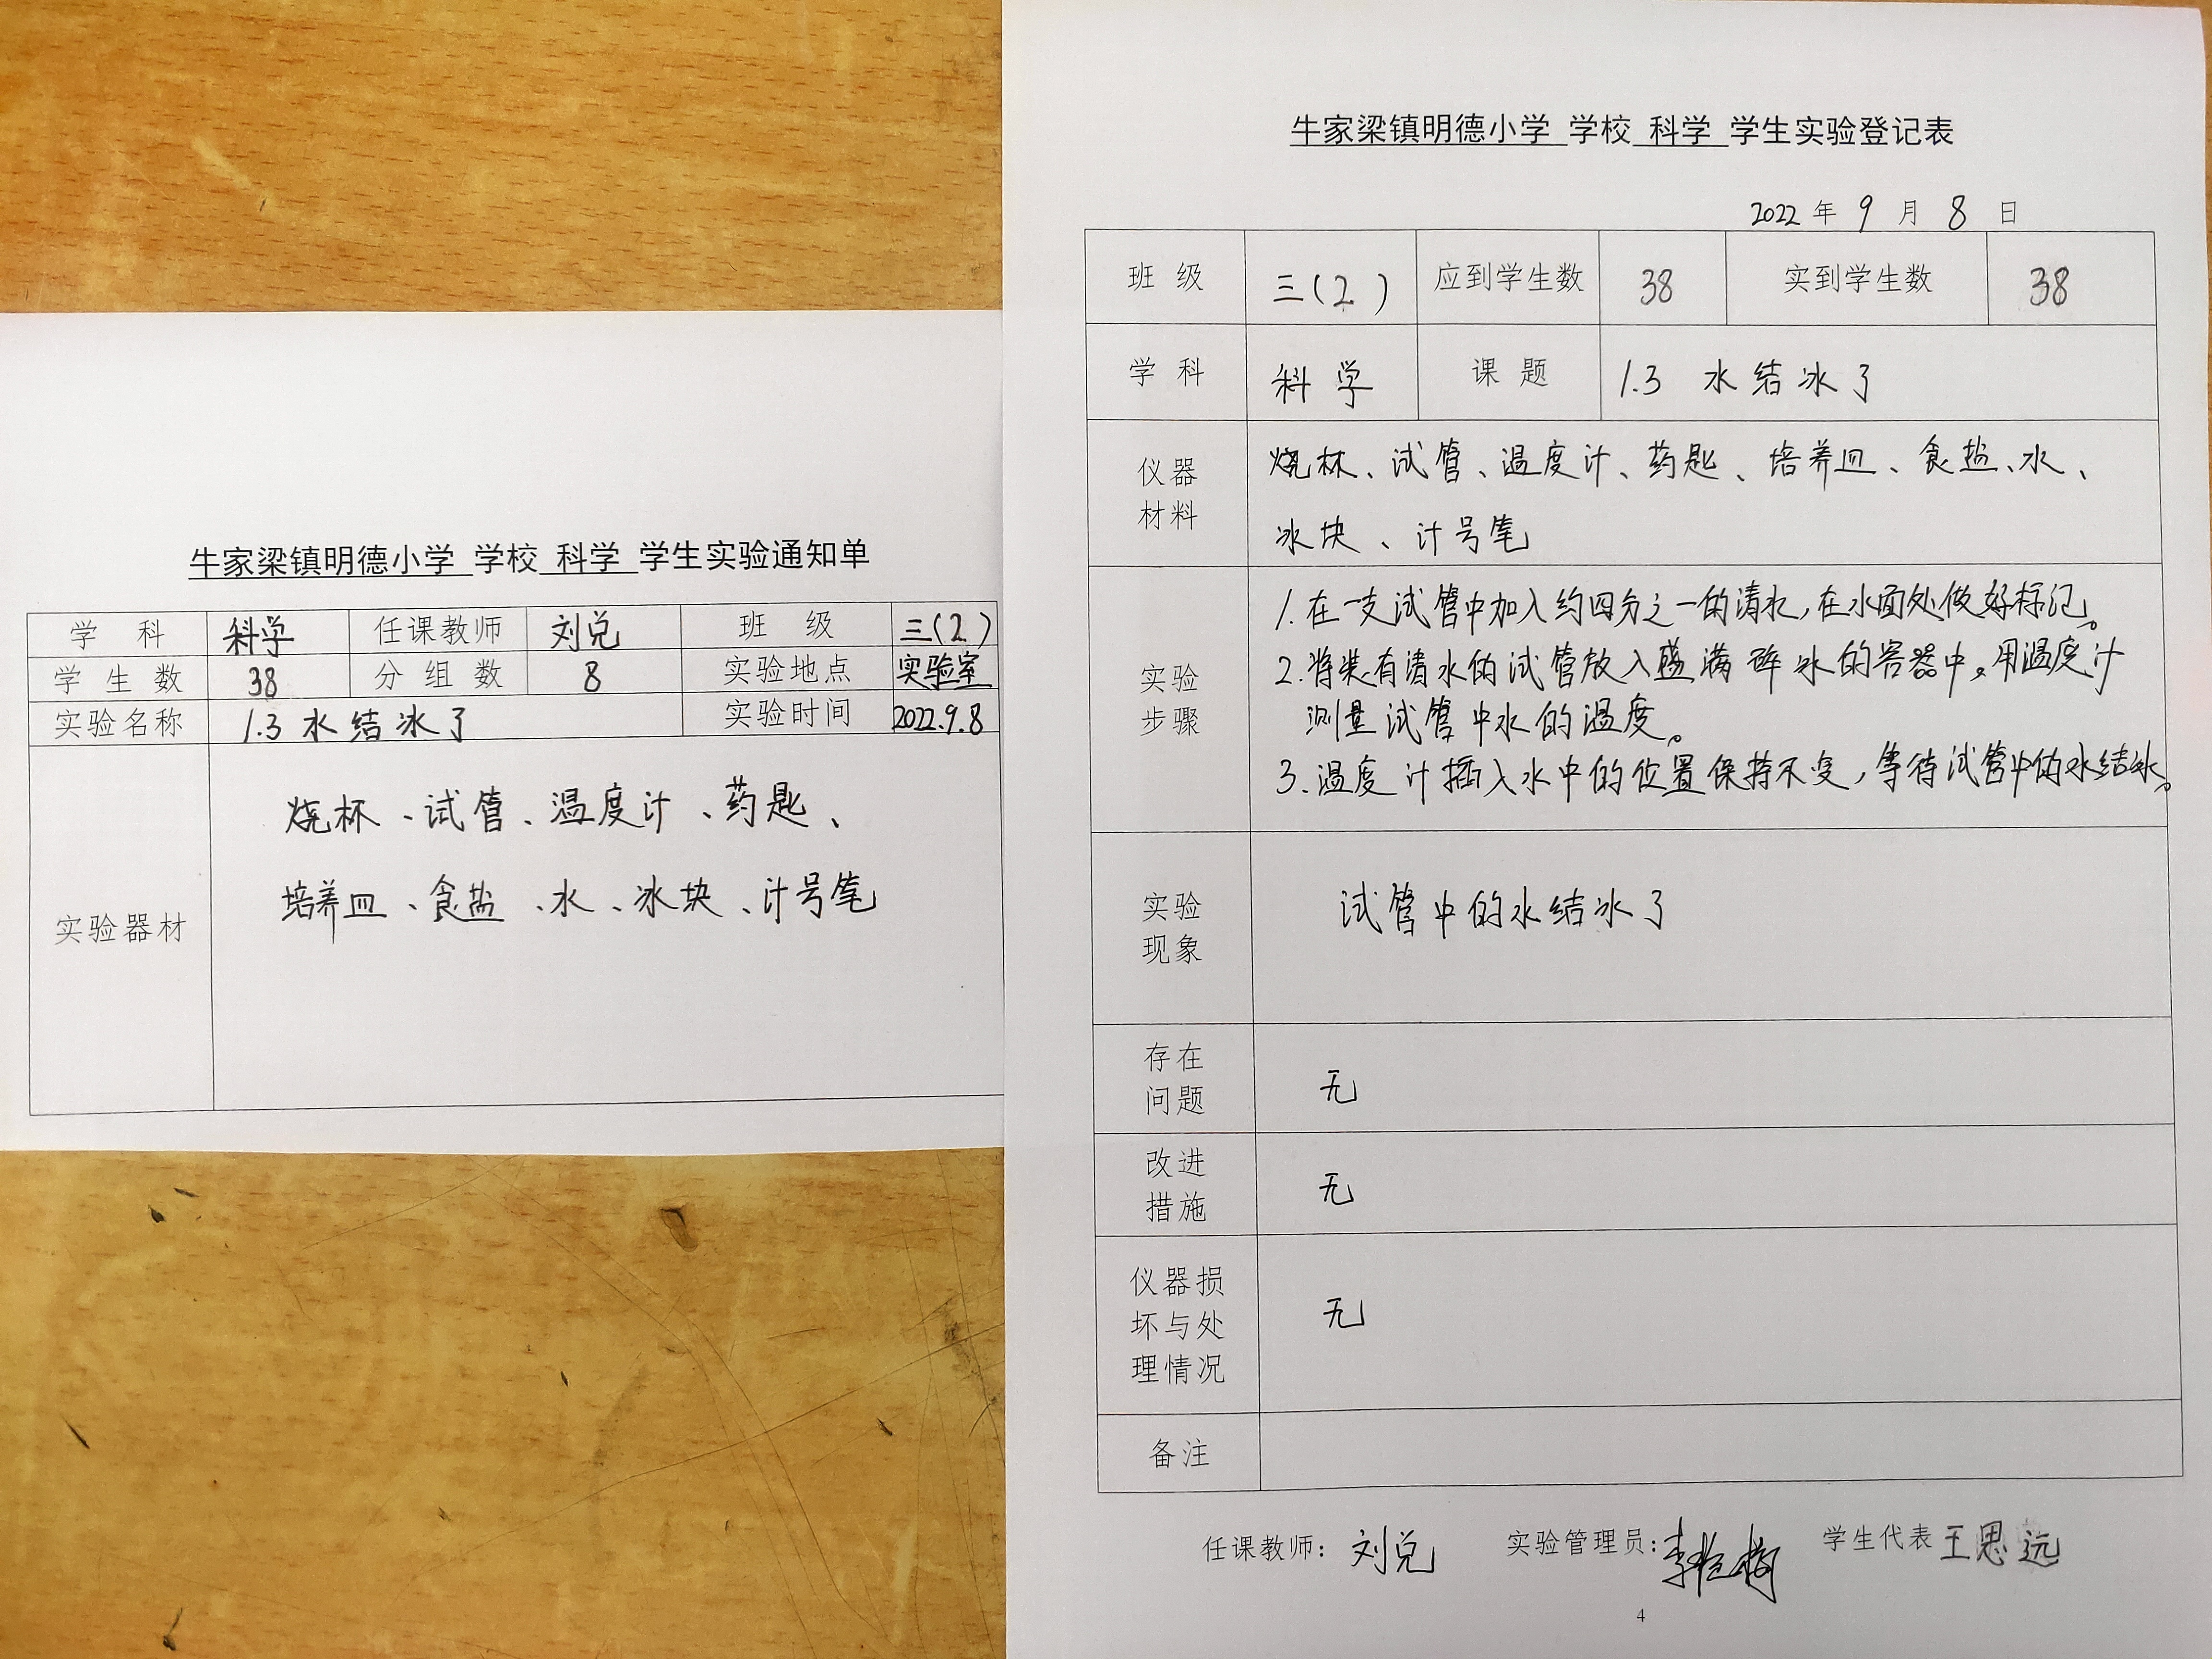 牛家梁镇明德小学 学校 科学 学生实验通知单
学 科 科学 任课教师 刘兑 班 级 三(2)
学 生 数 38 分 组 数 8 实验地点 实验室
实验名称 1.3 水结冰了 实验时间 2022.9.8
实验器材
烧杯、试管、温度计、药匙、
培养皿、食盐、水、冰块、计号笔
牛家梁镇明德小学 学校 科学 学生实验登记表
2022 年 9 月 8 日
班 级 三(2) 应到学生数 38 实到学生数 38
学 科 科学 课 题 1.3 水结冰了
仪器
材料
烧杯、试管、温度计、药匙、培养皿、食盐、水、
冰块、计号笔
实验
步骤
1.在一支试管中加入约四分之一的清水,在水面处做好标记。
2.将装有清水的试管放入盛满碎冰的容器中。用温度计
测量试管中水的温度。
3.温度计插入水中的位置保持不变,等待试管中的水结冰。
实验
现象
试管中的水结冰了
存在
问题
无
改进
措施
无
仪器损
坏与处
理情况
无
备注
任课教师：刘兑 实验管理员: 学生代表 王思远
4